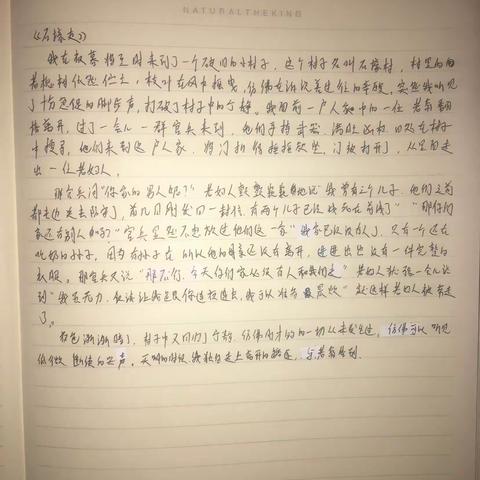 NATURALTHEKING
《石壕吏》
我在夜幕将至时来到了一个破旧的小村子，这个村子名叫石壕村，村里的
树低垂 ，枝叶在风中摇曳，仿佛在诉说着过往的辛酸，突然我听见
了 急促的脚步声，打破了村子中的宁静。我面前一户人家中的一位老翁翻
墙离开，过了一会儿一群官兵来到，他们手持武器，满脸凶相，四处在村子
中搜寻，他们来到这户人家，将门扣得摇摇欲坠，门被打开了，从里面走
出一位老妇人，
那官兵问“你家的男人呢？”老妇人颤颤巍巍地说“我曾有三个儿子，他们之前
都走边关去防守了，前几日刚发回一封信，有两个儿子已经战死在前线了”“那你们
家还有别人吗？”官兵显然不想放过他们这一家“我家已没有人了，只有一个还在
吃奶的孙子，因为有孙子在，所以他的母亲还没有离开，进进出出没有一件完整的
衣服。那官兵又说“那不行，今天你们家必须有人和我们走”老妇人犹豫一会儿说
到“我虽无力，但请让我连夜跟你这边过去，我可以准备晨炊”就这样老妇人被带走
了。
夜色渐渐暗了，村子中又回归了宁静，仿佛刚才的一切从未发生过，仿佛可以听见
低微断续的哭声，天明的时候我独自走上离开的路途，与老翁告别。